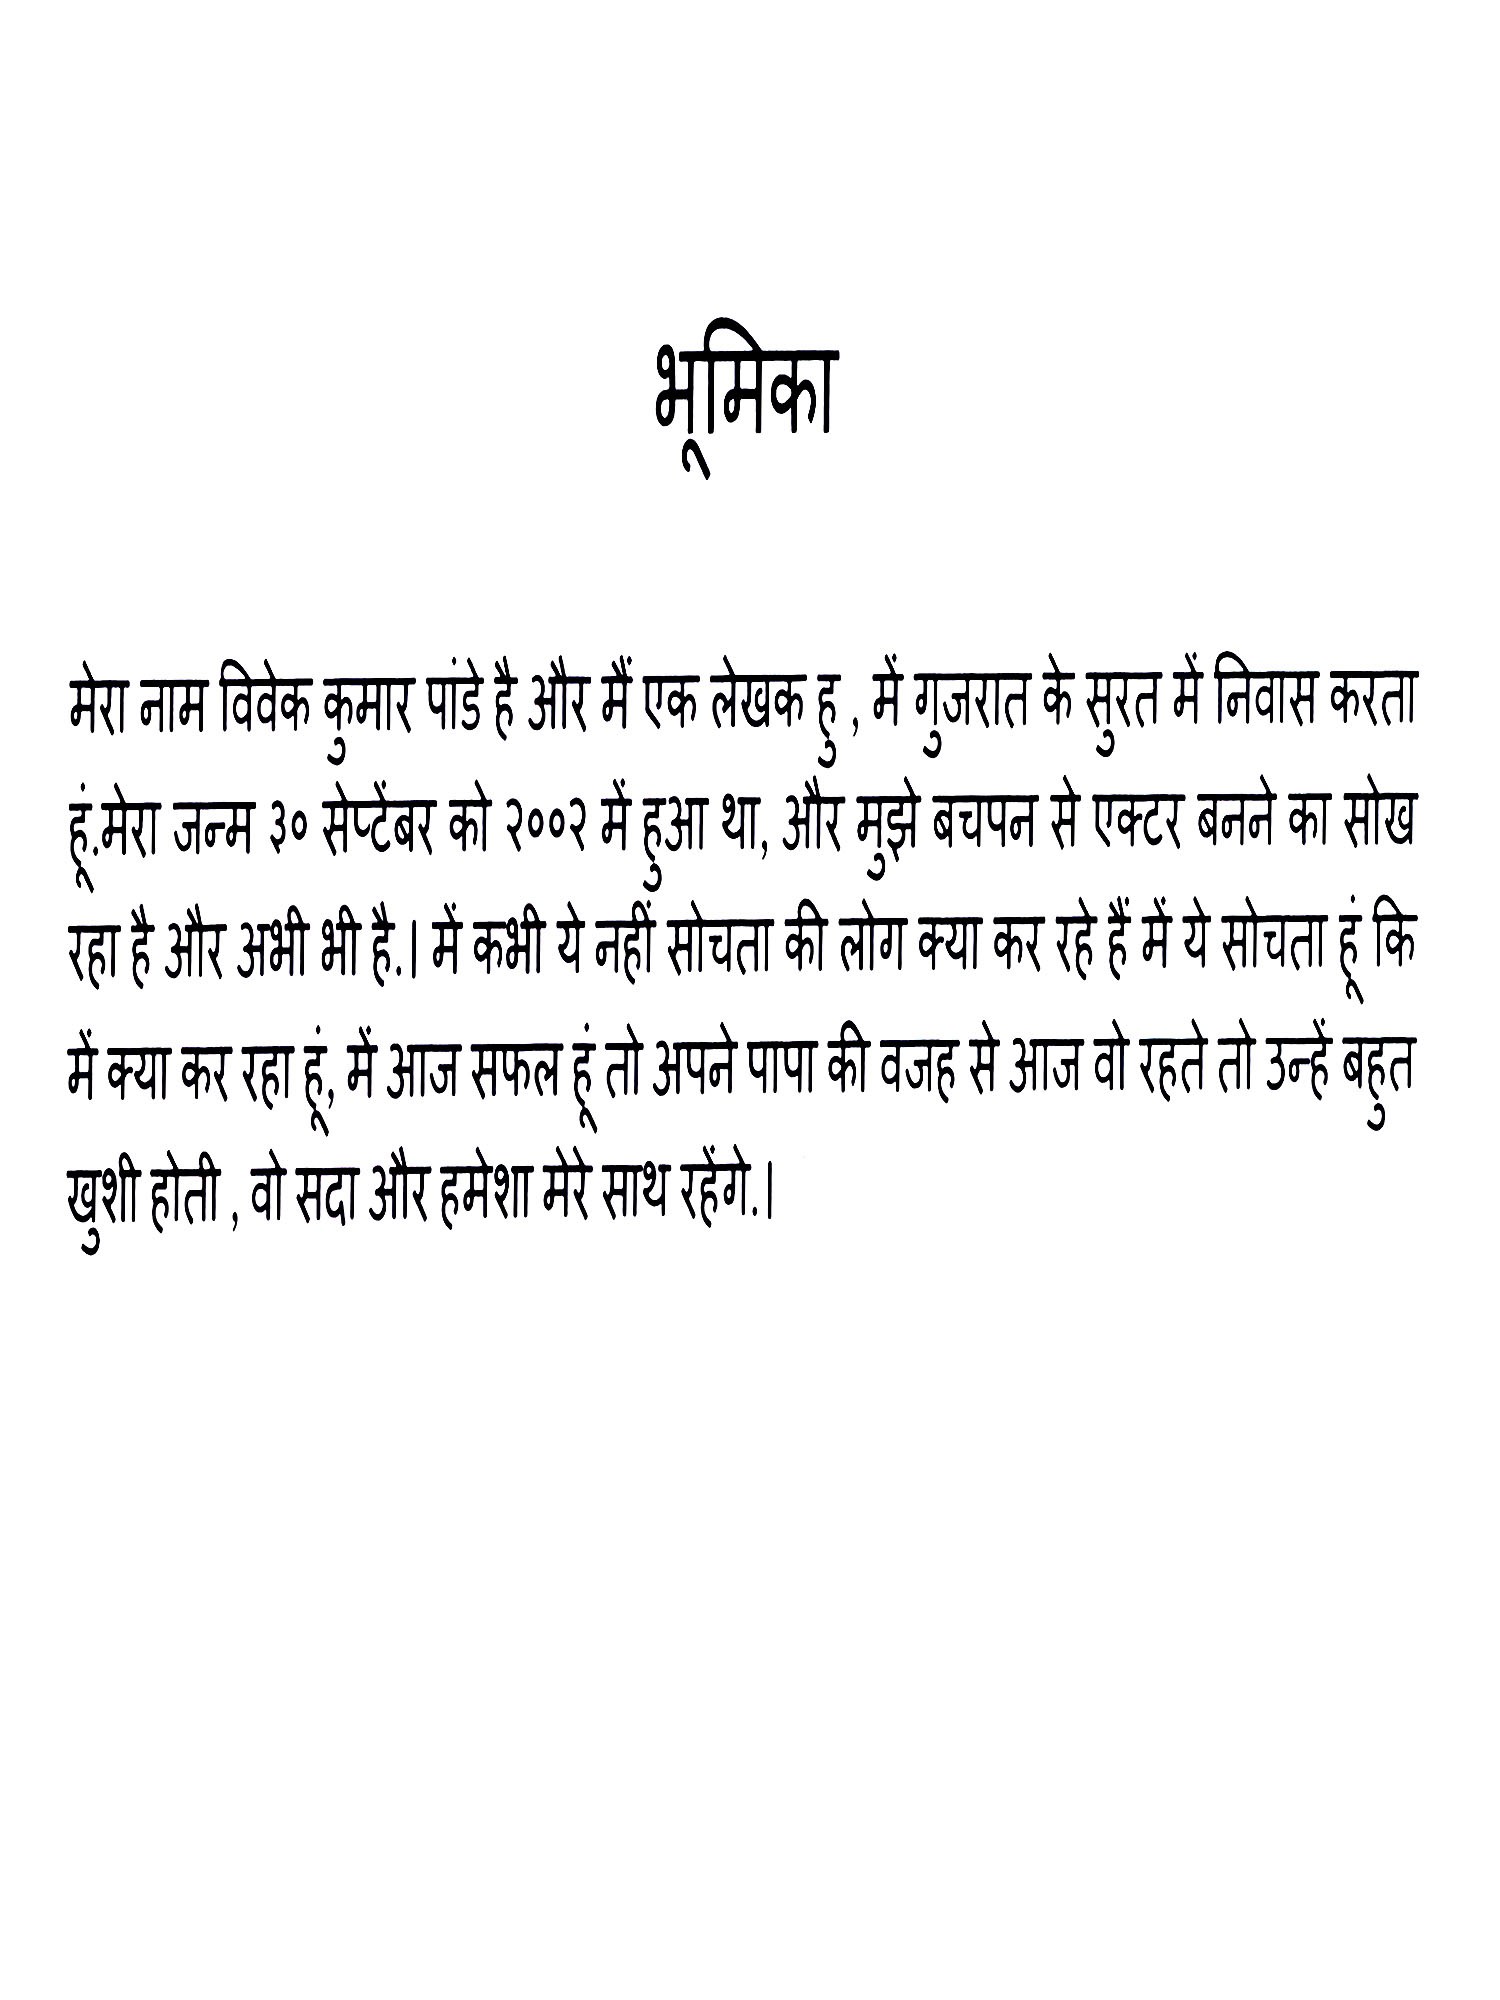 भूमिका
मेरा नाम विवेक कुमार पांडे है और मैं एक लेखक हु , में गुजरात के सुरत में निवास करता
हूं.मेरा जन्म ३० सेप्टेंबर को २००२ में हुआ था, और मुझे बचपन से एक्टर बनने का सोख
रहा है और अभी भी है.। में कभी ये नहीं सोचता की लोग क्या कर रहे हैं में ये सोचता हूं कि
में क्या कर रहा हूं, में आज सफल हूं तो अपने पापा की वजह से आज वो रहते तो उन्हें बहुत
खुशी होती , वो सदा और हमेशा मेरे साथ रहेंगे.।